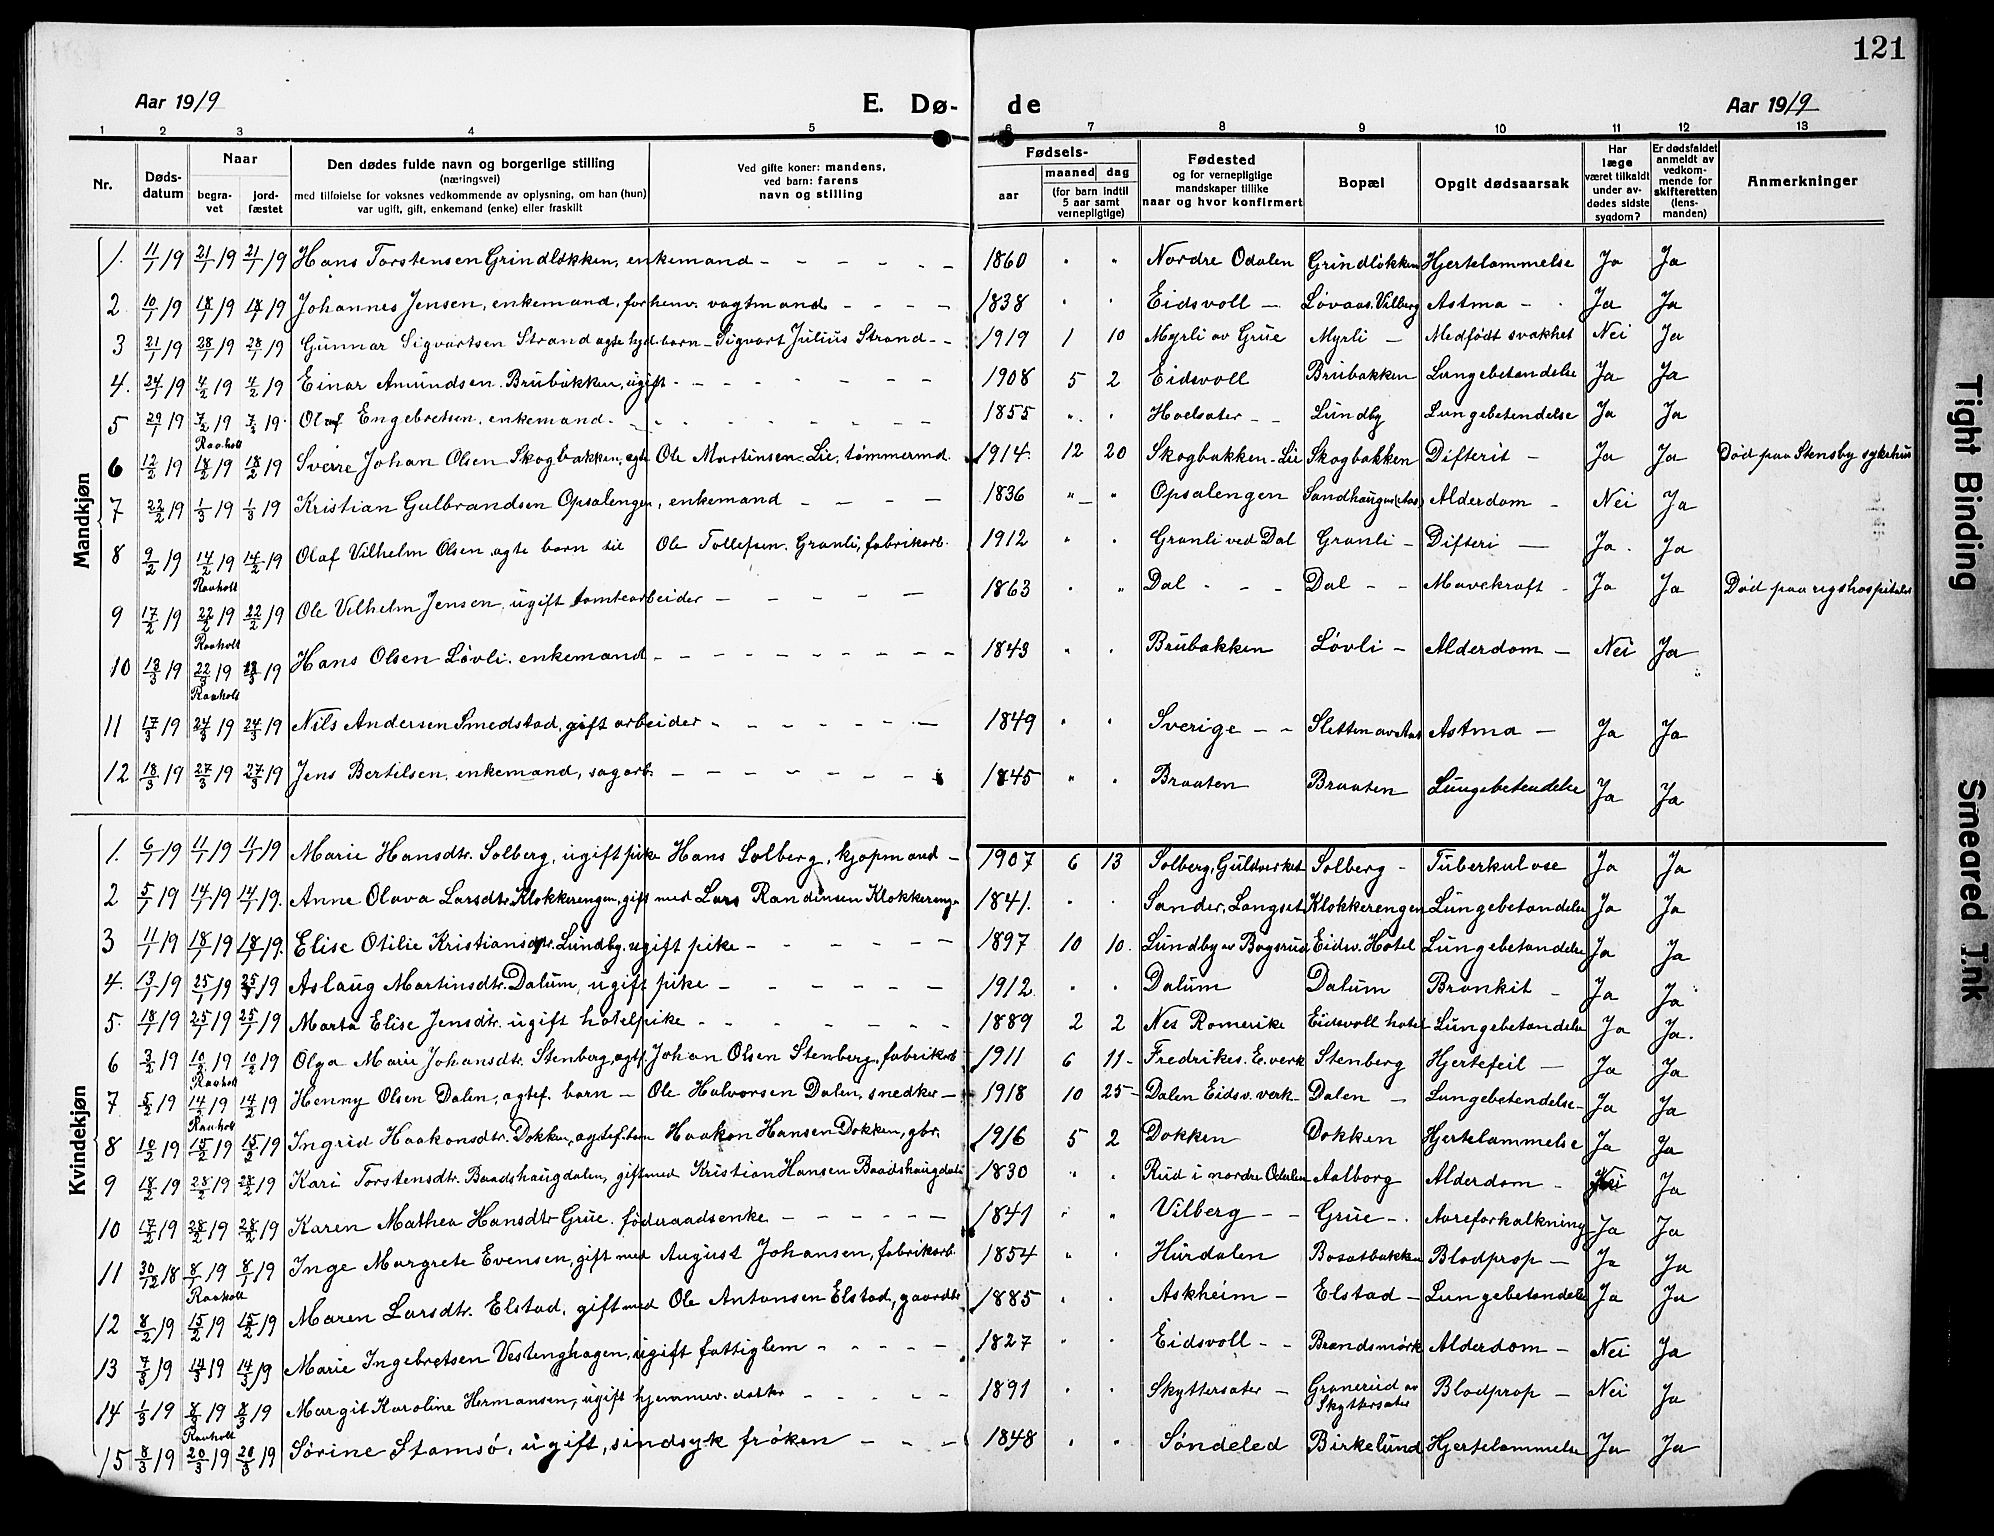 121
Aar 1919 E. Dø- de Aar 1919
1 2 3 4 5 6 7 8 9 10 11 12 13
Nr.
Døds-
datum
Naar
begra-
vet
jord-
fæstet
Den dødes fulde navn og borgerlige stilling
(næringsvei)
med tilføielse for voksnes vedkommende av oplysning, om han (hun)
var ugift, gift, enkemand (enke) eller fraskilt
Ved gifte koner: mandens,
ved barn: farens
navn og stilling
Fødsels-
aar
maaned dag
(for barn indtil
5 aar samt
vernepligtige)
Fødested
og for vernepligtige
mandskaper tillike
naar og hvor konfirmert
Bopæl
Opgit dødsaarsak
Har
læge
været tilkaldt
under av-
dødes sidste
sygdom?
Er dødsfaldet
anmeldt av
vedkom-
mende for
skifteretten
(lens-
manden)
Anmerkninger
Mandkjøn
1. 11/1 19 21/1 19 21/1 19 Hans Torstensen Grindløkken, enkemand - 1860 " " Nordre Odalen Grindløkken Hjertelammelse Ja Ja
2. 10/1 19 18/1 19 18/1 19 Johannes Jensen, enkemand, forhenv. vagtmand - 1838 " " Eidsvoll - Løvaas, Vilberg Astma - Ja Ja
3 21/1 19 28/1 19 28/1 19 Gunnar Sigvartsen Strand agte barn - Sigvart Julius Strand - 1919 1 10 Myrli av Grue Myrli - Medfødt svakhet Nei Ja
4. 24/1 19 4/2 19 4/2 19 Einar Amundsen Brubakken, ugift - 1908 5 2 Eidsvoll Brubakken Lungebetændelse Ja Ja
5 29/1 19 7/2 19 7/2 19 Olaf Engebretsen, enkemand - 1855 " " Hoelsæter - Lundby Lungebetendelse Ja Ja
Raaholt
6 12/2 19 18/2 19 18/2 19 Sverre Johan Olsen Skogbakken, egte Ole Martinsen Lie, tømmermd. 1914. 12 20 Skogbakken - Lie Skogbakken Difterit - Ja Ja Død paa Stensby sykehus
7 22/2 19 1/3 19 1/3 19 Kristian Gulbrandsen Opsalengen, enkemand - 1836 " " Opsalengen Sandhaugen (Aas) Alderdom - Nei Ja
8 9/2 19 14/2 19 14/2 19 Olaf Vilhelm Olsen, agte barn til Ole Tollefsen Granli, fabrikarb. 1912 " " Granli ved Dal Granli - Difteri - Ja. Ja
Raaholt
9 17/2 19 22/2 19 22/2 19 Ole Vilhelm Jensen, ugift tomtearbeider - 1863 " " Dal - Dal - Mavekraft - Ja Ja Død paa rigshospitalet
Raaholt
10 13/3 19 22/3 19 /3 19 Hans Olsen Løvli, enkemand - 1843 " " Brubakken Løvli - Alderdom - Nei Ja
Raaholt
11 17/3 19 24/3 19 24/3 19 Nils Andersen Smedstad, gift arbeider - 1849 " " Sverige - Sletten av Aas Astma - Ja Ja
12 18/3 19 27/3 19 27/3 19 Jens Bertilsen, enkemand, sagarb. - 1845 " " Braaten Braaten Lungebetendelse Ja Ja
Kvindekjøn
1. 6/1 19 11/1 19 11/1 19 Marie Hansdtr. Solberg, ugift pike Hans Solberg, kjøpmand - 1907 6 13 Solberg, Guldverket Solberg - Tuberkulose Ja Ja
2 5/1 19 14/1 19 14/1 19. Anne Olava Larsdtr. Klokkerengen, gift med Lars Randinsen Klokkereng. 1841. " " Sander, Langset Klokkerengen Lungebetændelse Ja Ja
3 11/1 19 18/1 19 18/1 19. Elise Otilie Kristiansdtr. Lundby, ugift pike - 1897 10 10. Lundby av Bogsrud Eidsv. Hotel Lungebetændelse Ja Ja
4. 13/1 19 25/1 19 25/1 19 Aslaug Martinsdtr. Dalum, ugift pike - 1912. " " Dalum Dalum Bronkit - Ja Ja
5. 18/1 19 25/1 19 25/1 19 Marta Elise Jensdtr. ugift hotelpike - 1889 2 2 Nes Romerike Eidsvoll hotel Lungebetændelse Ja Ja.
6 3/2 19 10/2 19 10/2 19 Olga Marie Johansdtr. Stenberg, agtf. Johan Olsen Stenberg, fabrikarb. 1911 6 11 - Fredrikes. E.verk Stenberg Hjertefeil - Ja Ja
Raaholt
7 5/2 19 14/2 19 14/2 19 Henny Olsen Dalen, agtef. barn - Ole Halvorsen Dalen, snedker - 1918 10 25 - Dalen Eidsv. verk - Dalen - Lungebetendelse - Ja Ja
Raaholt
8 10/2 19 15/2 19 15/2 19 Ingrid Haakonsdtr. Dokken, agtef. Haakon Hansen Dokken, gbr. 1916 5 2 Dokken Dokken Hjertelammelse Ja Ja
9 18/2 19 28/2 19 28/2 19 Kari Torstensdtr. Baadshaugdalen, gift med Kristian Hansen Baadshaugdal. 1830 " " Rud i nordre Odalen Aalborg Alderdom - Nei Ja
10 17/2 19 28/2 19 28/2 19 Karen Mathea Hansdtr Grue, føderaadsenke - 1841 " " Vilberg - Grue - Aareforkalkning Ja Ja
11 30/12 18 8/1 19 8/1 19 Inge Margrete Evensen, gift med August Johansen, fabrikarb. 1854 " " Hurdalen Bosatbakken Blodprop - Ja Ja
Raaholt
12 8/2 19 15/2 19 15/2 19 Maren Larsdtr. Elstad, gift med Ole Antonsen Elstad, gaardbr. 1885 " " Askheim - Elstad - Lungebetændelse Ja Ja
13 7/3 19 14/3 19 14/3 19 Marie Ingebretsen Vestenghagen, ugift fattiglem - 1827 " " Eidsvoll - Brandsmørk Alderdom - Nei Ja
14 1/3 19 8/3 19 8/3 19 Margit Karoline Hermansen, ugift hjemmev. datter - 1891 " " Skyttersæter - Granerud av Skyttersæter Blodprop - Nei Ja
Raaholt
15 8/3 19 20/3 19 20/3 19 Sørine Stamsø, ugift, sindsyk frøken - 1848 " " Søndeled Birkelund Hjertelammelse Ja Ja
Tight Binding
Smeared Ink